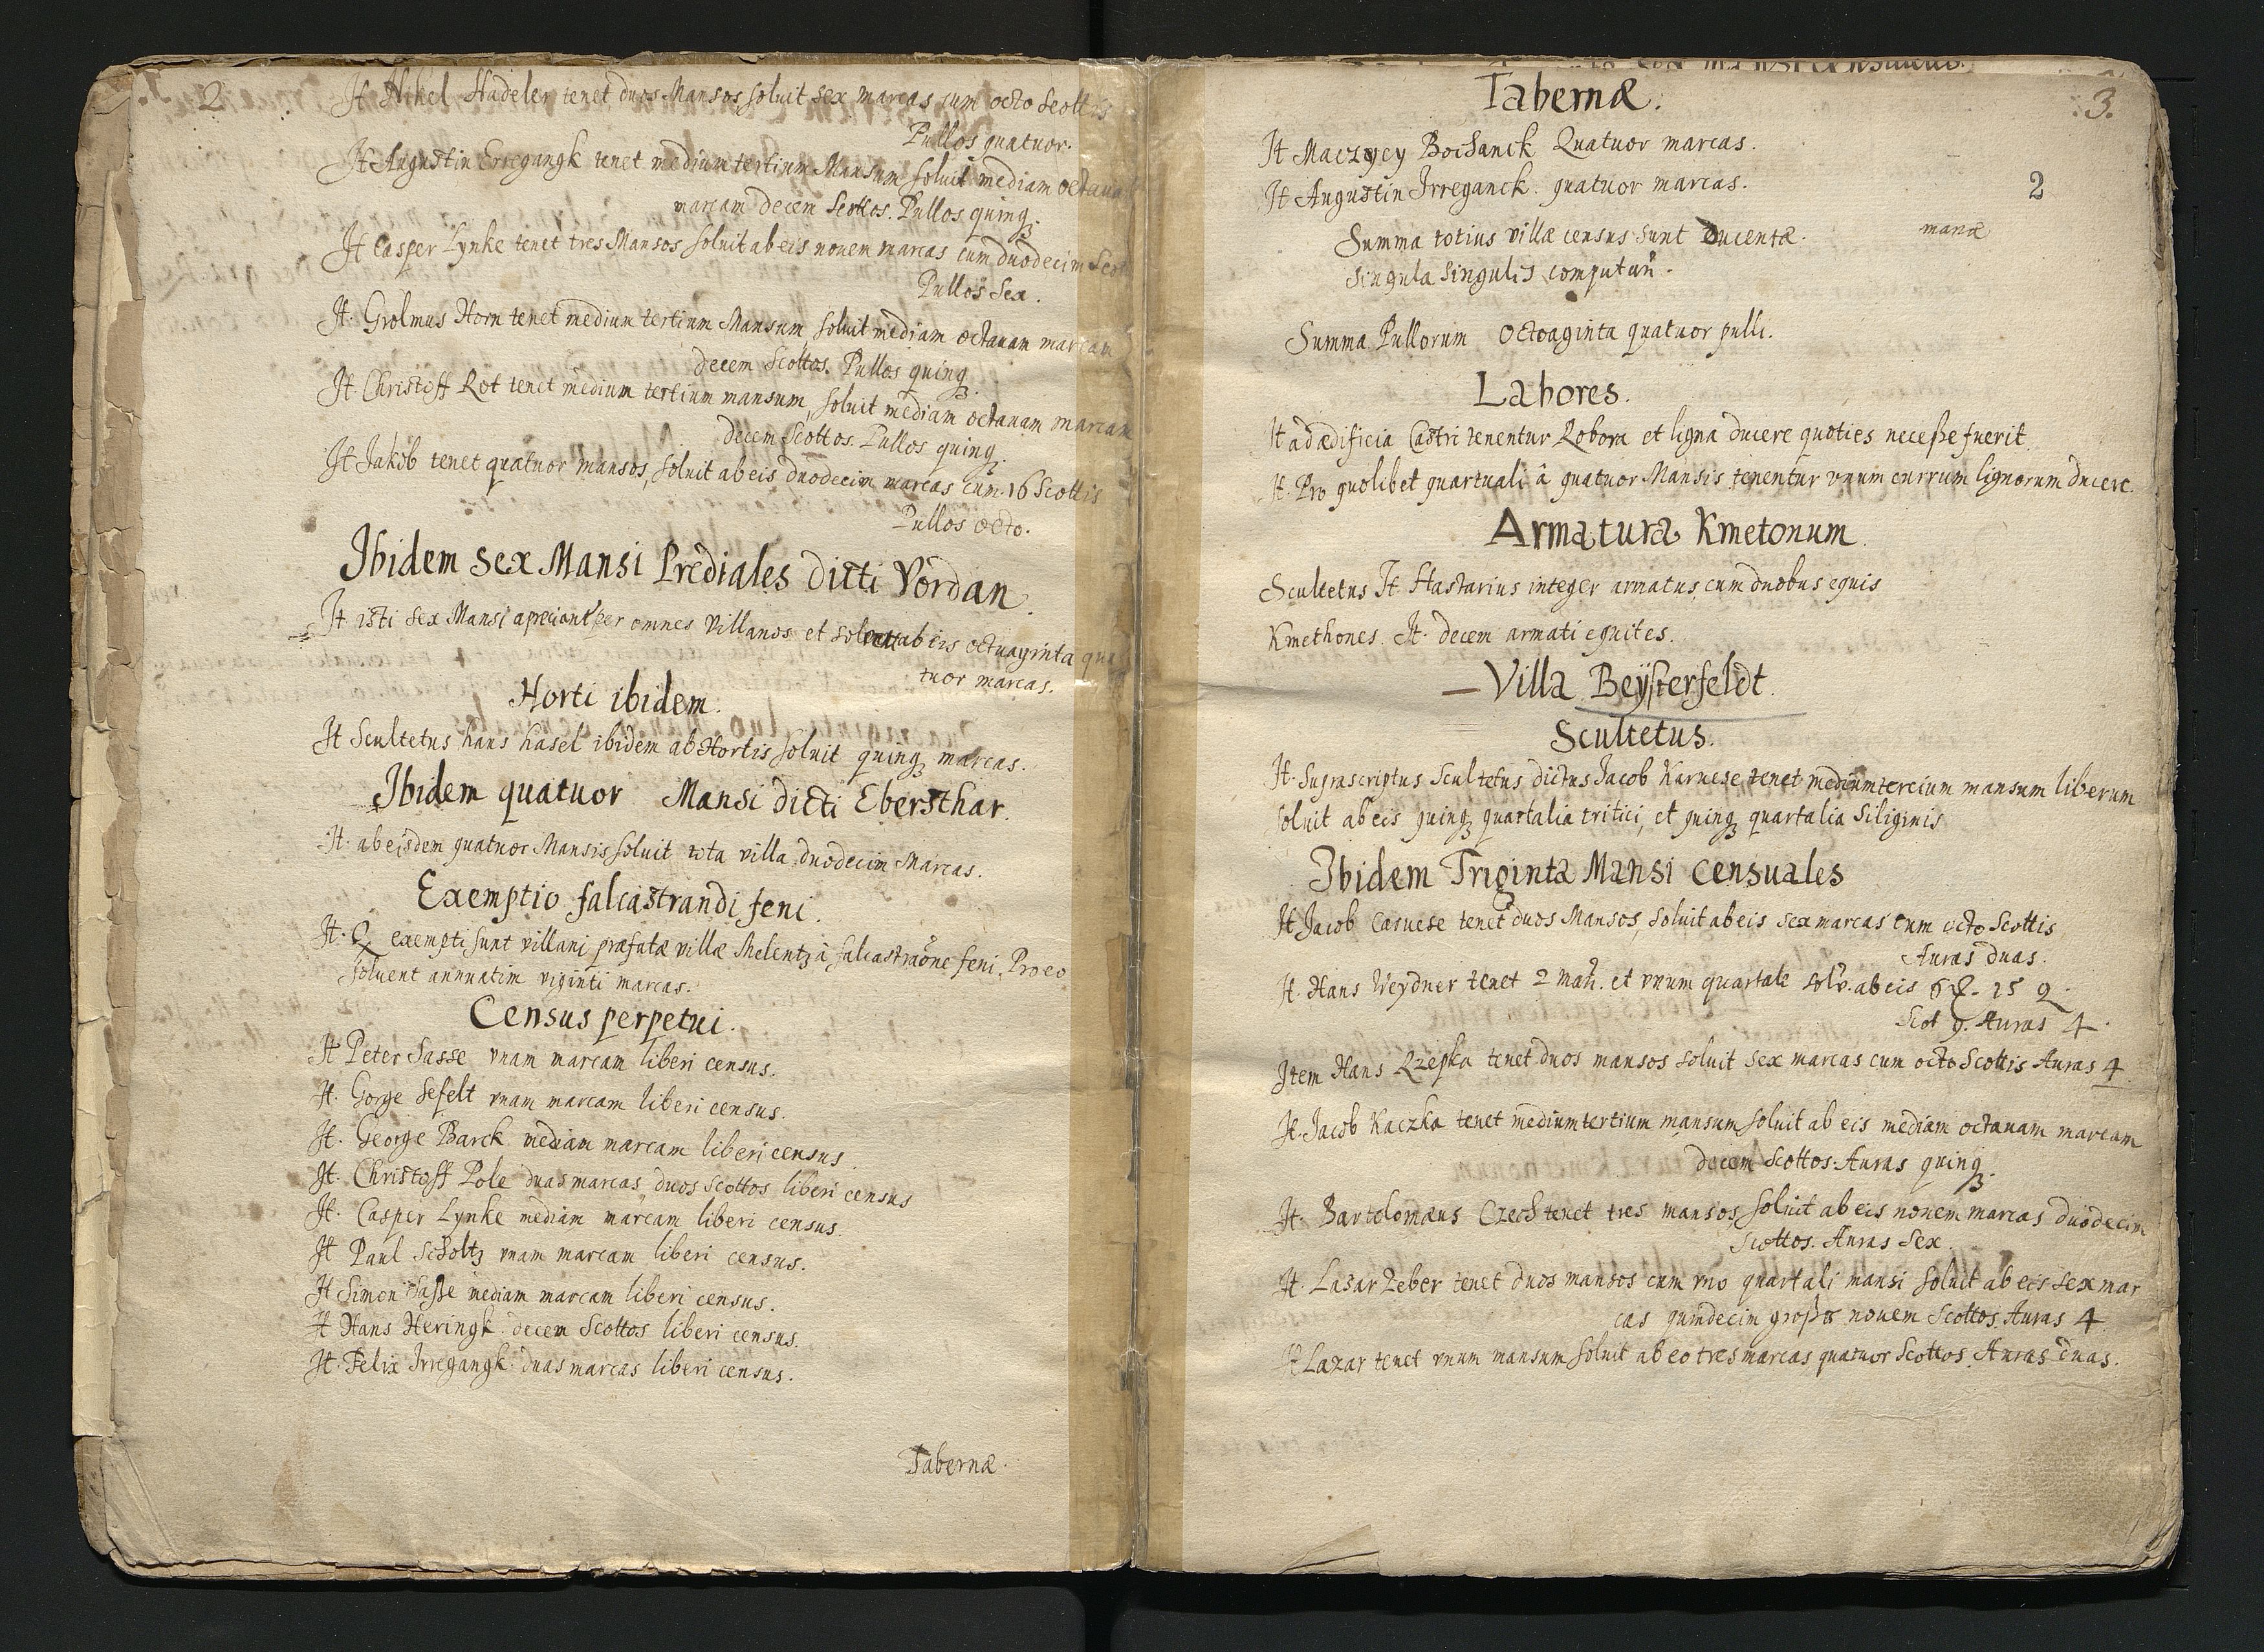 2
It Nikel Hadeler tenet duos Mansos soluit sex marcas cum octo Scottis
Pullos quatuor.
It Augustin Erregangk tenet medium tertium Mansum soluit mediam octaua
marcam decem Scottos. Pullos quinq3.
It Casper Lynke tenet tres Mansos soluit ab eis nouem marcas cum duodecim Scot
Pullos Sex.
It. Grolmus Horn tenet medium tertium Mansum, soluit mediam octauam marcam
decem Scottos. Pullos quinq3
It. Christoff Rot tenet medium tertium mansum, soluit mediam octauam marcam
decem Scottos. Pullos quinq3.
It Jakob tenet quatuor mansos, soluit ab eis duodecim marcas cum 16 Scottis
Pullos octo.
Ibidem sex Mansi Prediales dicti Vordan.
It isti sex Mansi apreciant per omnes Villanos et soluunt ab eis octuaginta qua
tuor marcas.
Horti ibidem.
It Scultetus hans hasel ibidem ab Hortis soluit quinq3 marcas.
Ibidem quatuor Mansi dicti Ebersthar.
It. ab eisdem quatuor Mansis soluit tota villa duodecim Marcas.
Exemptio falcastrandi feni.
It. Q exempti sunt villani præfatæ villæ Melentz à falcastraone feni, Pro eo
soluent annuatim viginti marcas.
Census perpetui.
It Peter Sasse vnam marcam liberi census.
It. Gorge Sefelt vnam marcam liberi census.
It. George Barck mediam marcam liberi census.
It. Christoff Pole duas marcas duos scottos liberi census
It. Casper Lynke mediam marcam liberi census.
It Paul Scholtz vnam marcam liberi census.
It Simon Saße mediam marcam liberi census.
It Hans Heringk decem Scottos liberi census.
It. Felix Irregangk duas marcas liberi census.
Tabernæ.
3.
Tabernæ.
It Maczyey Bochanck Quatuor marcas.
It Augustin Irreganck. quatuor marcas.
2
Summa totius villæ census sunt Ducentæ. marcæ
singula singulis computan.
Summa Pullorum Octoaginta quatuor pulli.
Labores.
It ad ædificia Castri tenentur Robora et ligna ducere quoties neceße fuerit.
It. Pro quolibet quartuali â quatuor Mansis tenentur vnum currum lignorum ducere.
Armatura Kmetonum.
Scultetus It. Hastarius integer armatus cum duobus equis
Kmethones. It. decem armati equites.
Villa Beysterfeldt.
Scultetus.
It. Suprascriptus Scultetus dictus Jacob Karuese, tenet medium tercium mansum liberum
soluit ab eis quinq3 quartalia tritici, et quinq3 quartalia Siliginis
Ibidem Triginta Mansi Censuales
It Jacob Caruese tenet duos Mansos, soluit ab eis sex marcas cum octo Scottis
Auras duas.
It. Hans Weydner tenet 2 man. et vnum quartale solv. ab eis 6 15
Scot 9. Auras 4.
Item Hans Rzepka tenet duos mansos soluit sex marcas cum octo Scottis Auras 4.
It. Jacob Kaczka tenet medium tertium mansum soluit ab eis mediam octauam marcam
decem Scottos. Auras quinq3.
It. Bartolomæus Czech tenet tres mansos, soluit ab eis nonem marcas duodecim
Scottos. Auras Sex.
It. Lasar Zeber tenet duos mansos cum vno quartali mansi soluit ab eis sex mar
cas quindecim großos nouem Scottos. Auras 4
It Lazar tenet vnum mansum soluit ab eo tres marcas quatuor Scottos. Auras duas.